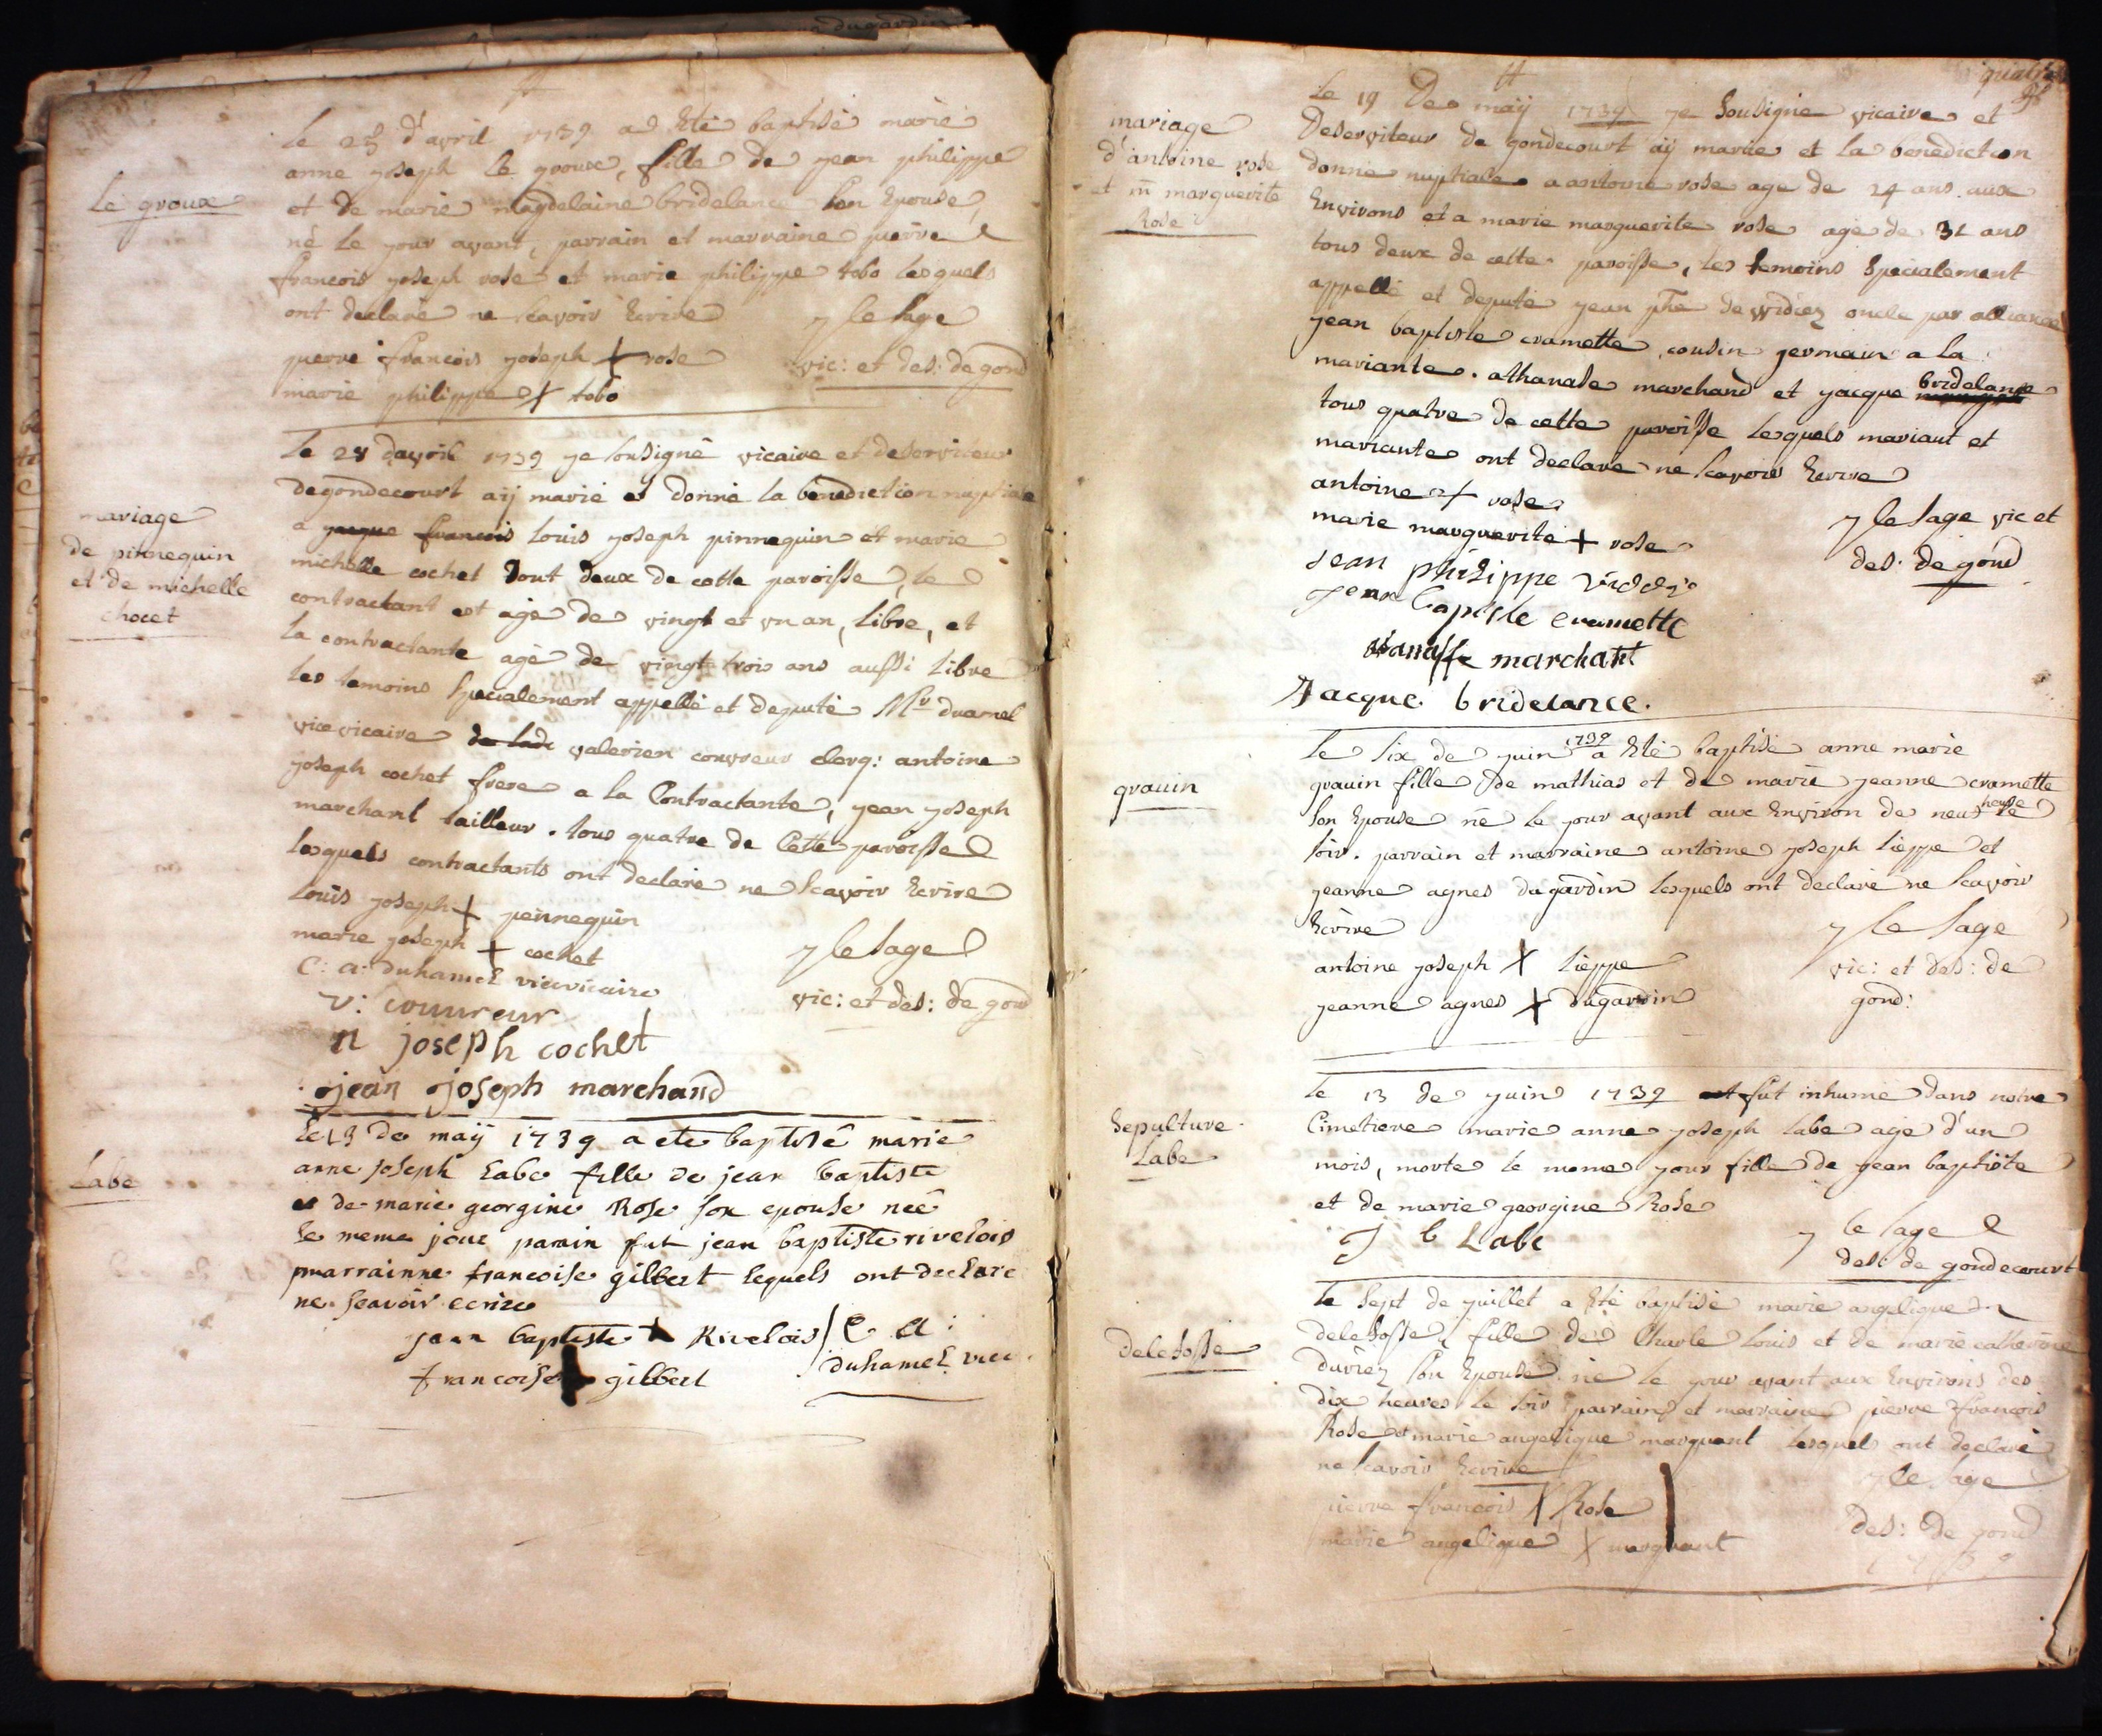 dugardin
le groux
le 25 d'avril 1739 a Eté baptisé marie
anne joseph le groux, fille de jean philippe
et de marie magdelaine bridelance son Epouse,
né le jour avant, parrain et marraine pierre
francois joseph rose et marie philippe tobo lesquels
ont declaré ne scavoir Ecrire
pierre francois joseph + rose
marie philippe + tobo
j le sage
vic: et des: de gond
mariage
de pinnequin
et de michelle
chocet
le 28 davril 1739 je sousigné vicaire et deserviteur
degondecourt aÿ marié et donné la benediction nuptiale
a jacque francois louis joseph pinnequin et marie
michelle cochet tout deux de cette paroisse, le
contractant est agé de vingt et un an, libre, et
la contractante agé de vingt trois ans aussi libre
les temoins specialement appellé et deputé Mr duamel
vice vicaire de lade valerien couvreur clerq: antoine
joseph cochet frere a la Contractante, jean joseph
marchant tailleur. tous quatre de Cette paroisse
lesquels contractants ont declaré ne scavoir Ecrire
louis joseph + pinnequin
marie joseph + cochet
C: a: duhamel vicevicaire
v: couureur
n joseph cochet
jean joseph marchand
j le sage
vic: et des: de gond
Labe
le 13 de maÿ 1739 a eté baptisé marie
anne joseph Labe fille de jean baptiste
et de marie georgine Rose son epouse neé
le meme jour parain fut jean baptiste rivelois
marrainne francoise gilbert lequels ont declare
ne scavoir ecrire
jean baptiste + Rivelois
francoise + gilbert
C a:
duhamel vice
quatre
mariage
d'antoine rose
et m marguerite
Rose
le 19 De maÿ 1739 je sousigné vicaire et
Deserviteur de gondecourt aÿ marié et la benediction
donné nuptiale a antoine rose age de 24 ans aux
Environs et a marie marguerite rose agé de 31 ans
tous deux de cette paroisse, les temoins specialement
appellé et deputé jean phe de widiez oncle par alliance
jean baptiste cramette cousin germain a la
mariante. athanase marchand et jacque bridelance
tous quatre de cette paroisse lesquels mariant et
mariante ont declaré ne scavoir Ecrire
antoine + rose
marie marguerite + rose
jean philippe
jean bapiste cramette
marchant
Jacque bridelance.
j le sage vic et
des: de gond
grauin
le six de juin 1739 a Eté baptisé anne marie
grauin fille de mathias et de marie jeanne cramette
son Epouse né le jour avant aux Environ de neuf heure le
soir. parrain et marraine antoine joseph lieppe et
jeanne agnes dugardin lesquels ont declaré ne scavoir
Ecrire
antoine joseph X lieppe
jeanne agnes X dugardin
j le sage
vic: et des: de
gond:
sepulture
Labe
le 13 de juin 1739 fut inhumé dans notre
Cimetiere marie anne joseph labe agé d'un
mois, morte le meme jour fille de jean baptiste
et de marie georgine Rose
J b Labe
j le sage
des: de gondecourt
delefosse
le sept de juillet a Eté baptisé marie angelique
delefosse, fille de Charle louis et de marie catherine
duriez son Epouse né le jour avant aux Environs des
dix heures le soir parrain et marraine pierre francois
Rose et marie angelique marquant lesquels ont declaré
ne scavoir Ecrire
pierre francois X Rose
marie angelique X marquant
j le sage
des: de gond